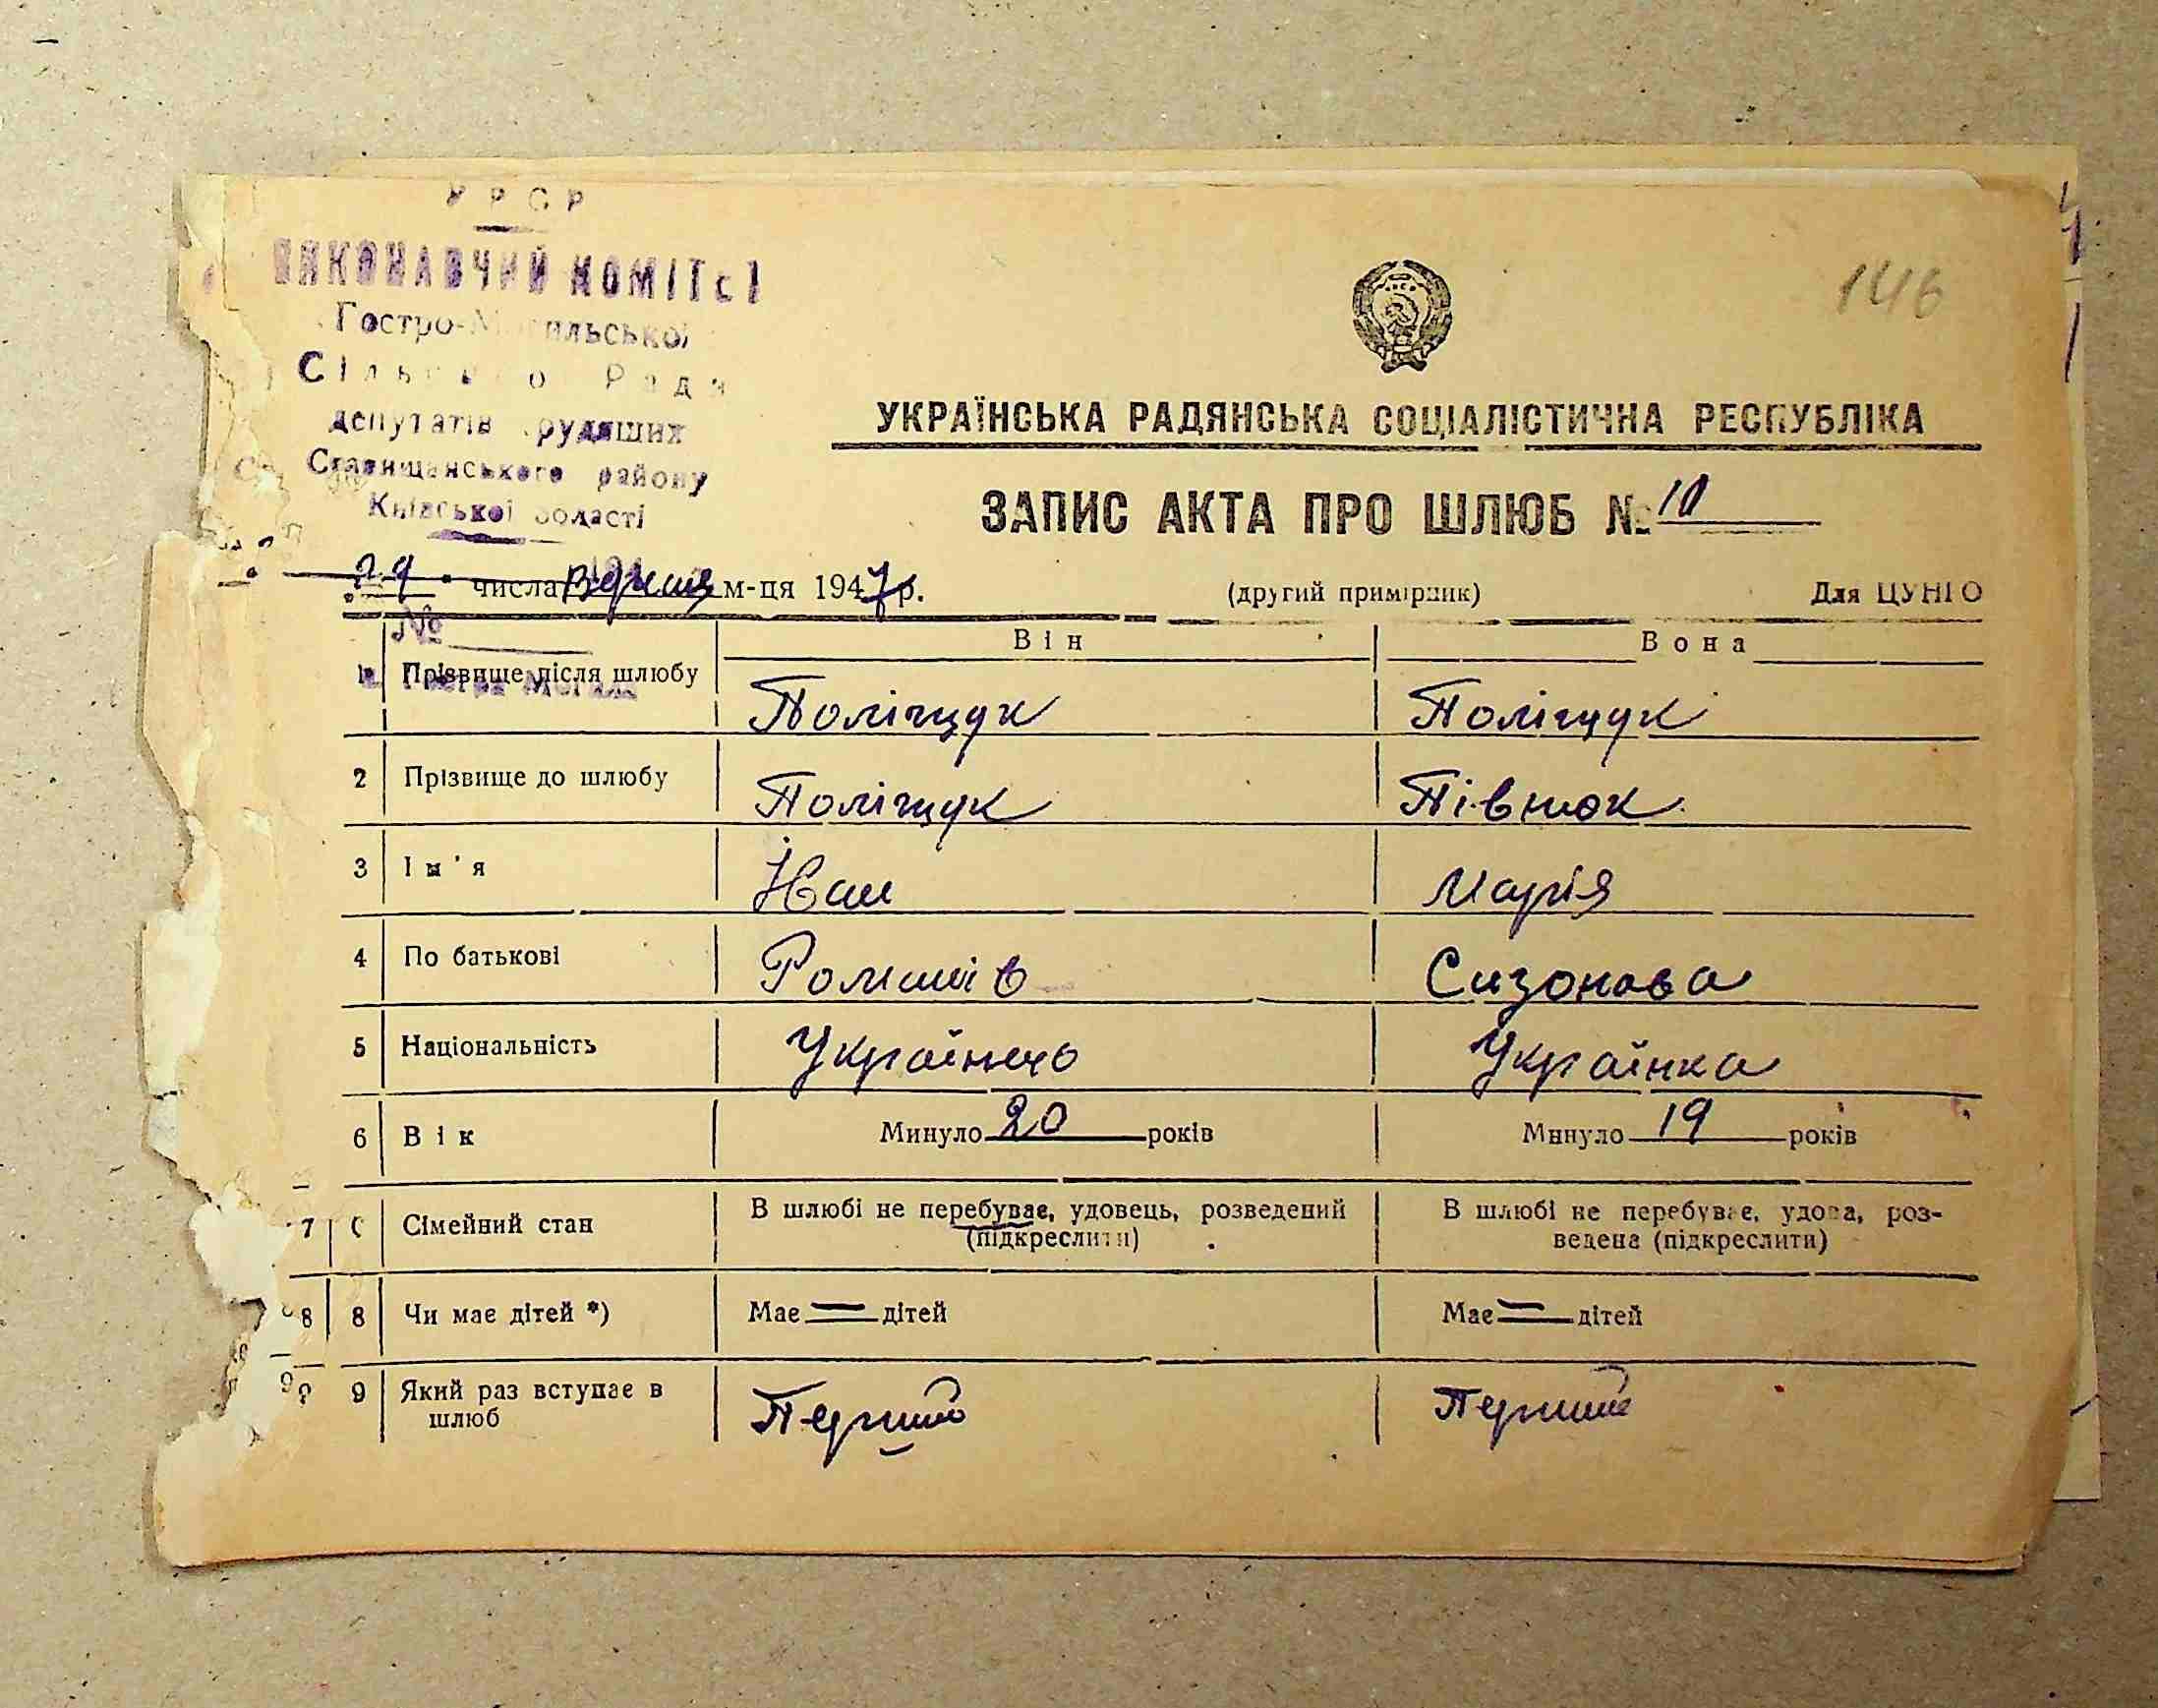 УРСР
146
ВИКОНАВЧИЙ КОМІТЕТ
Гостро-Могильської
Сільської Ради
депутатів трудящих
Ставищанського району
Київської області
УКРАЇНСЬКА РАДЯНСЬКА СОЦІАЛІСТИЧНА РЕСПУБЛІКА
ЗАПИС АКТА ПРО ШЛЮБ № 10
числа Вересня м-ця 1947 р. (другий примірник) Для ЦУНГО
№
Він Вона
1 Прізвище після шлюбу Поліщук Поліщук
2 Прізвище до шлюбу Поліщук Півнюк
3 Ім'я Іван Марія
4 По батькові Романів Сизонова
5 Національність Українець Українка
6 Вік Минуло 20 років Минуло 19 років
7 Сімейний стан В шлюбі не перебуває, удовець, розведений В шлюбі не перебуває, удова, роз-
(підкреслити) ведена (підкреслити)
8 8 Чи має дітей *) Має — дітей Має — дітей
9 9 Який раз вступає в Перший Перший
шлюб